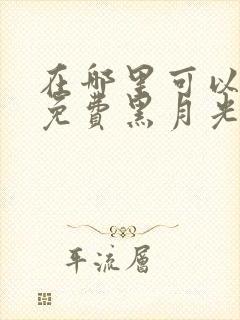 在哪里可以
免费黑月光
平流层